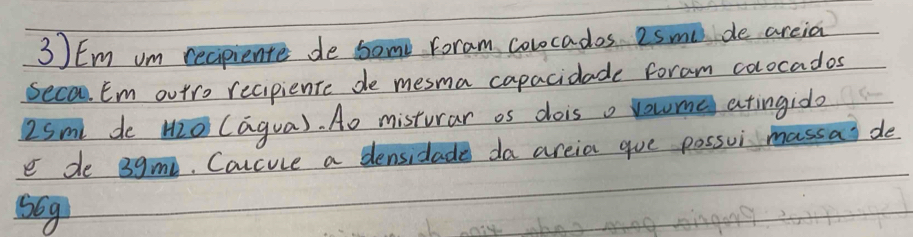 3) Em um recipiente de 50ml foram colocados 25ml de areia
seca. Em outro recipiente de mesma capacidade foram colocados
25ml de H2O (água). Ao misturar os dois o volume atingido
é de 39ml. Calcule a densidade da areia que possui massa de
56g